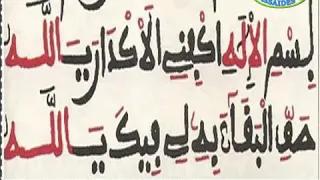 بِسْمِ الْإِلَهِ اكْفِنِي الْأَكْدَارَ يَا اللَّه
الْبَقَآءَ بِهِ لِي فِيكَ يَا اللَّه